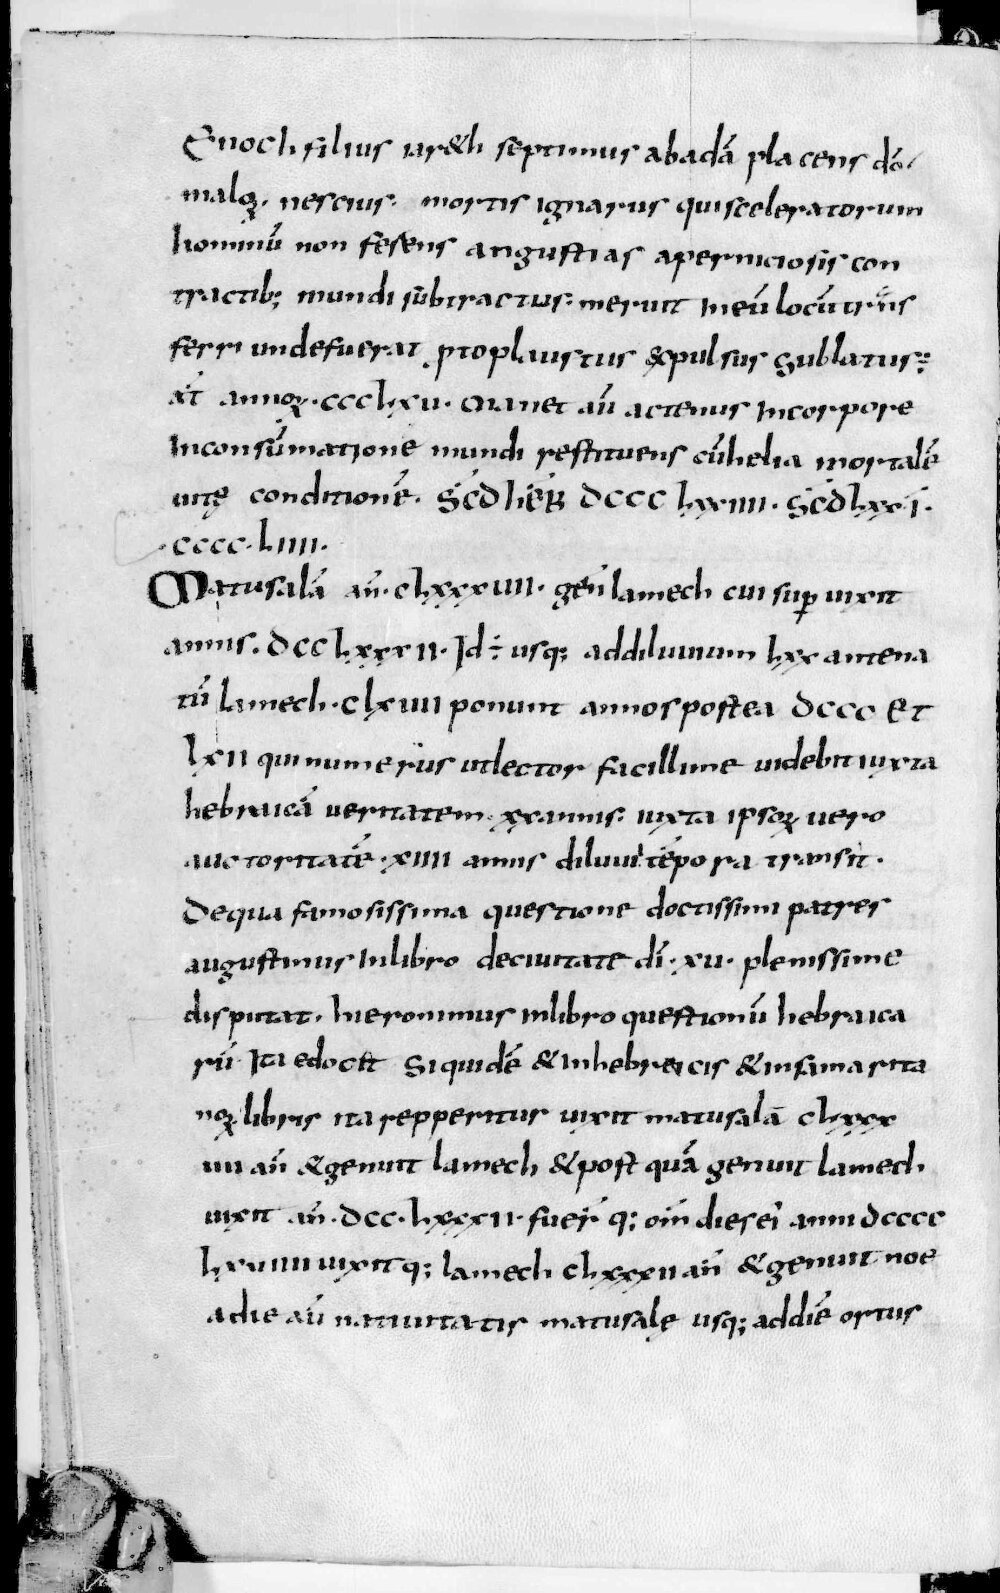 Enoch filius iar&h septimus abadā placens dō
maloꝝ. nescius. mortis ignarus quisceleratorum
hominū non fesens angustias aperniciosis con
tractib; mundi subtractus. meruit ineū locū trans
ferri undefuerat ptoplaustus expulsus sublatus;
āt annoꝝ. ccclxv. Manet aū actenus incorpore
inconsūmatione mundi restituens cūhelia mortalē
uitę conditionē. Scd heƀr dccclxiiii. Scd lxx i.
.cccc.liiii.
Matusalā añ. clxxxvii. geñ lamech cui sup uixit
annis. dcclxxxii. Id ÷ usq; addiluuium lxx antena
tū lamech. clxiiii ponunt annos postea dccc et
lxii qui numerus utlector facillime uidebit iuxta
hebraicā ueritatem. xxannis. iuxta ipsoꝝ uero
auctoritatē. xiiii annis diluuii tēpora transit.
Dequa famosissima questione doctissimi patres
augustinus inlibro deciuitate dī. xv. plenissime
disputat. hieronimus inlibro questionū hebraica
rū Ita edocet Siquidē & inhebreicis & insamarita
noꝝ libris ita repperitur uixit matusalā clxxx
vii añ & genuit lamech & post quā genuit lamech
uixit añ. dcc. lxxxii. fuer q; oīn dies eī anni dcccc
lxviiii uixitq; lamech clxxxii añ & genuit noe
adie aū natiuitatis matusalę usq; addiē ortus